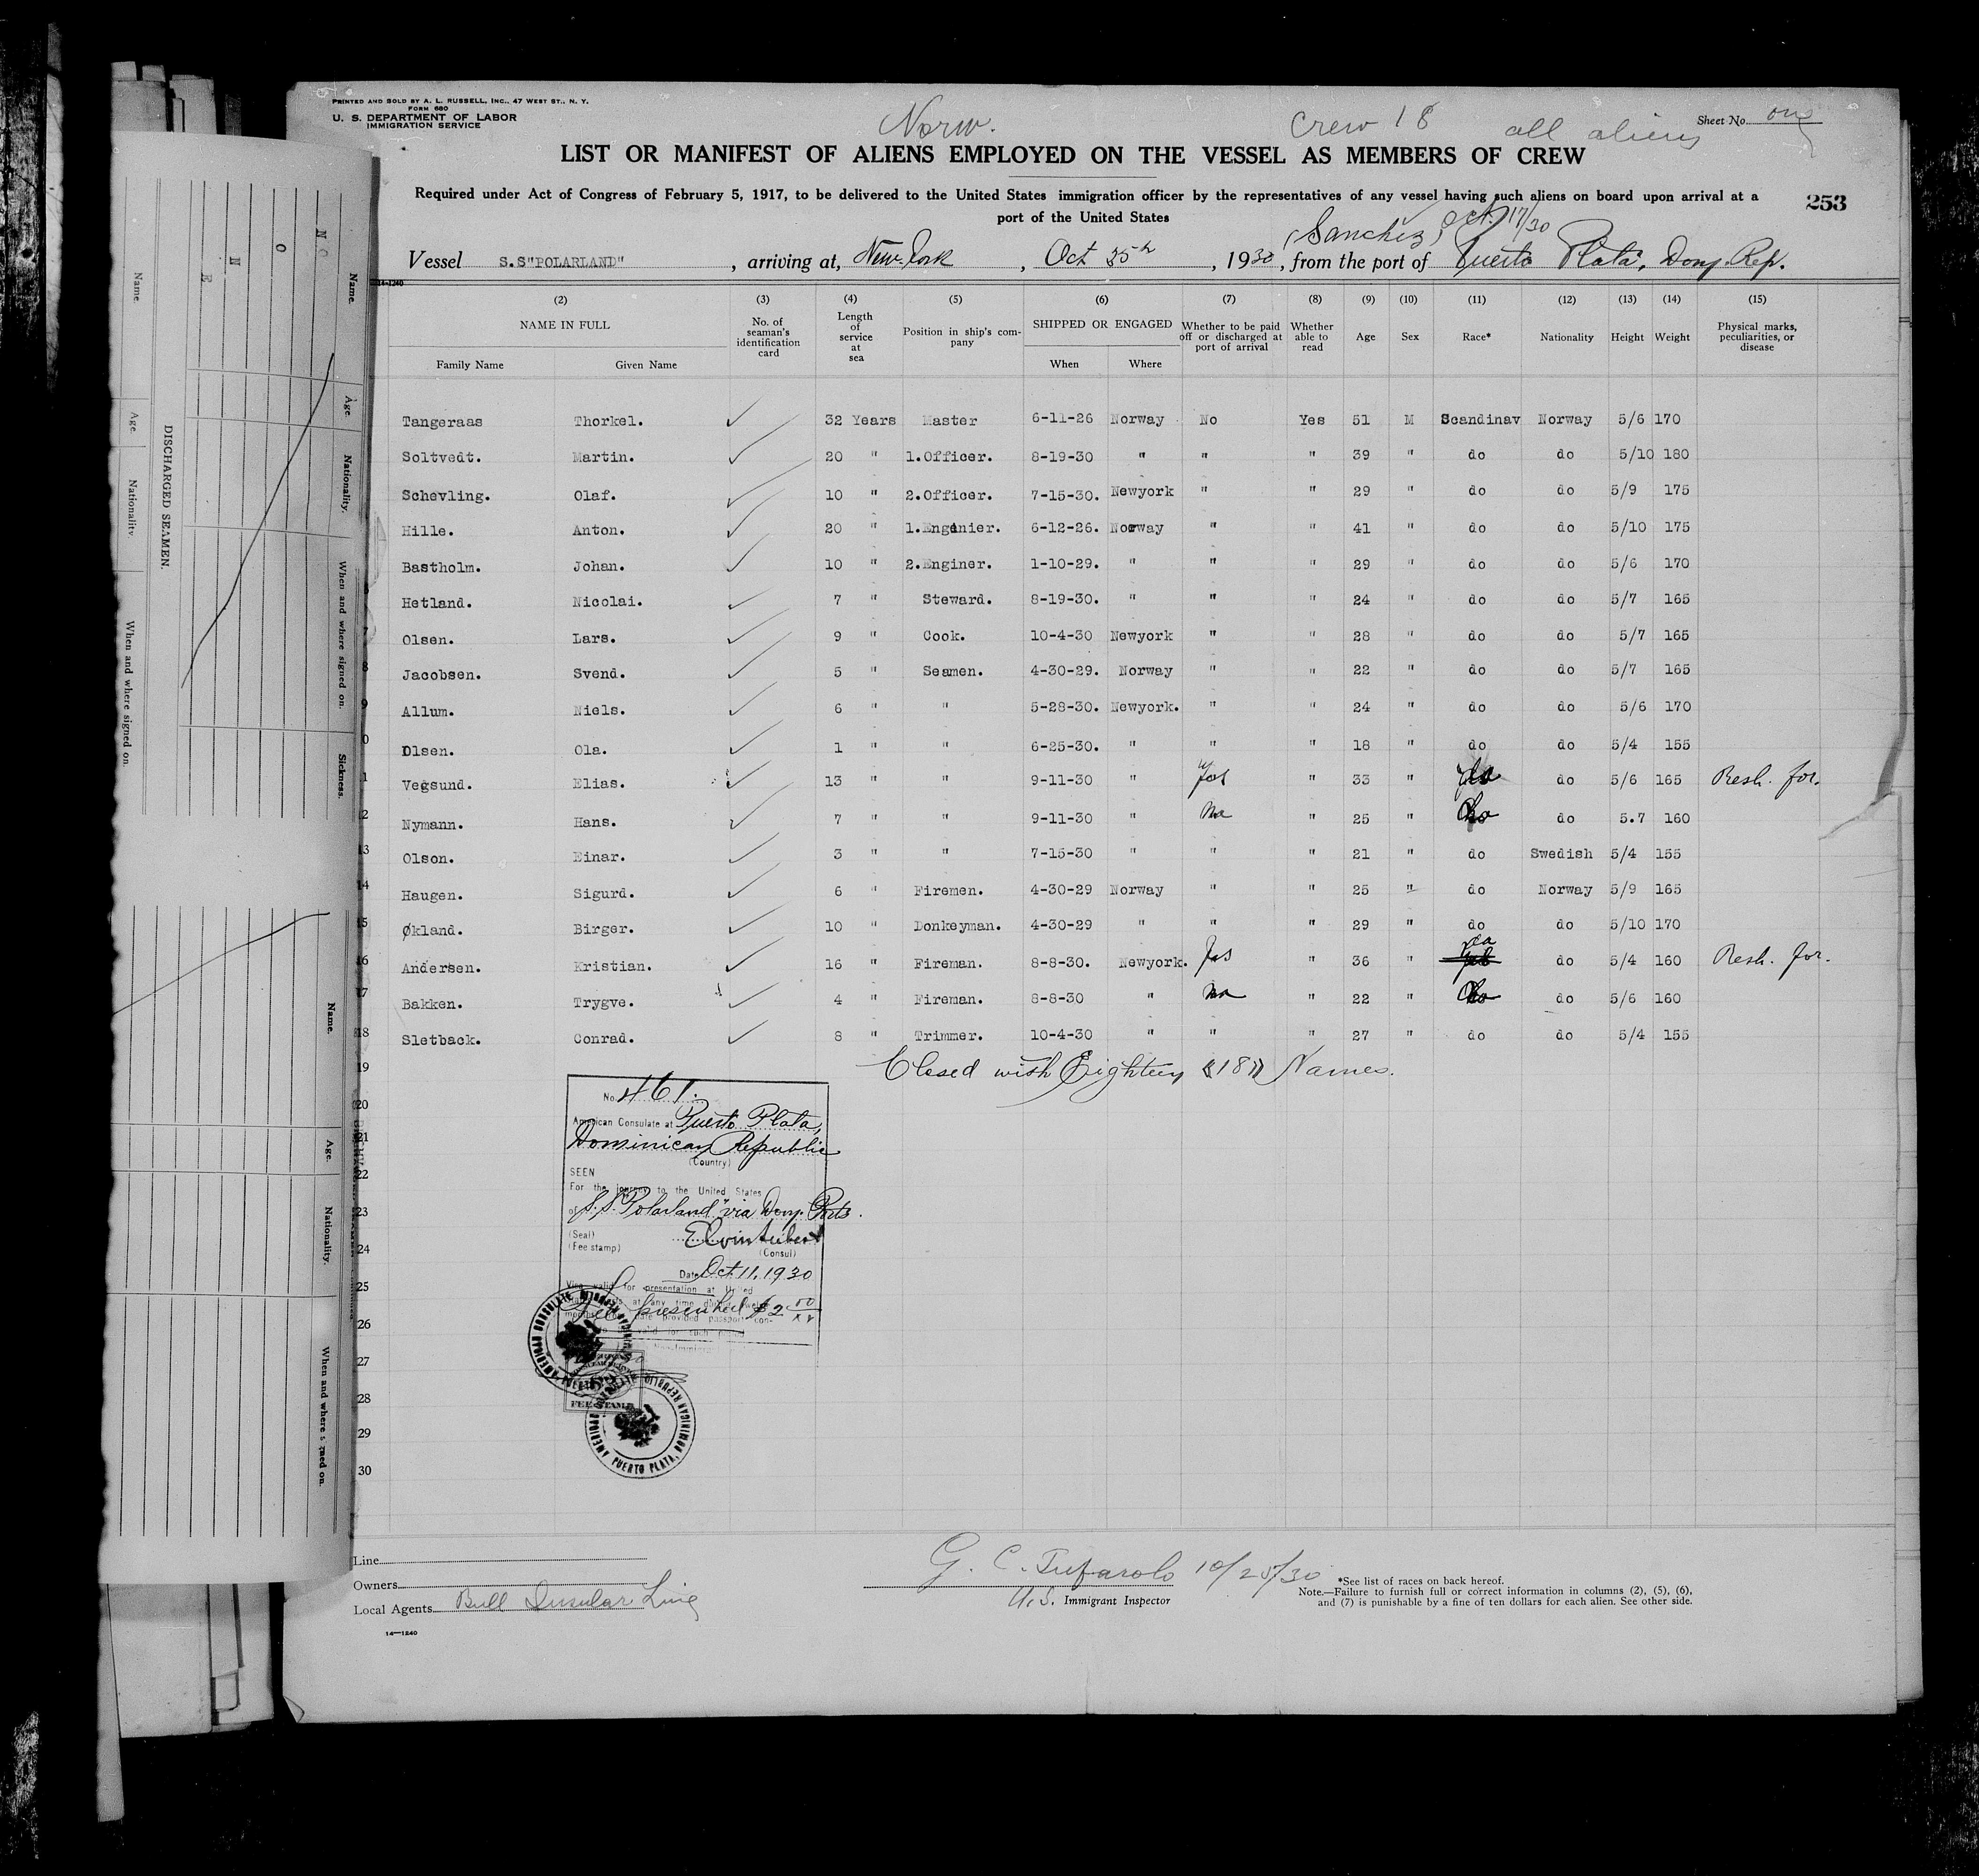 PRINTED AND SOLD BY A. L. RUSSELL, INC., 47 WEST ST., N. Y.
FORM 680
U. S. DEPARTMENT OF LABOR
IMMIGRATION SERVICE
Norw.
Crew 18 all aliens
Sheet No. one
LIST OR MANIFEST OF ALIENS EMPLOYED ON THE VESSEL AS MEMBERS OF CREW
Required under Act of Congress of February 5, 1917, to be delivered to the United States immigration officer by the representatives of any vessel having such aliens on board upon arrival at a
port of the United States
253
(Sanchez) Oct. 17/30
Vessel S.S"POLARLAND", arriving at, New York, Oct 25th, 1930, from the port of Puerto Plata, Dom. Rep.
14-1240
(2) (3) (4) (5) (6) (7) (8) (9) (10) (11) (12) (13) (14) (15)
NAME IN FULL No. of seaman's identification card Length of service at sea Position in ship's company SHIPPED OR ENGAGED Whether to be paid off or discharged at port of arrival Whether able to read Age Sex Race* Nationality Height Weight Physical marks, peculiarities, or disease
Family Name Given Name When Where
Tangeraas Thorkel. 32 Years Master 6-11-26 Norway No Yes 51 M Scandinav Norway 5/6 170
Soltvedt. Martin. 20 " 1.Officer. 8-19-30 " " " 39 " do do 5/10 180
Schevling. Olaf. 10 " 2.Officer. 7-15-30. Newyork " " 29 " do do 5/9 175
Hille. Anton. 20 " 1.Engenier. 6-12-26. Norway " " 41 " do do 5/10 175
Bastholm. Johan. 10 " 2.Enginer. 1-10-29. " " " 29 " do do 5/6 170
Hetland. Nicolai. 7 " Steward. 8-19-30. " " " 24 " do do 5/7 165
7 Olsen. Lars. 9 " Cook. 10-4-30 Newyork " " 28 " do do 5/7 165
8 Jacobsen. Svend. 5 " Seamen. 4-30-29. Norway " " 22 " do do 5/7 165
9 Allum. Niels. 6 " " 5-28-30. Newyork. " " 24 " do do 5/6 170
0 Olsen. Ola. 1 " " 6-25-30. " " " 18 " do do 5/4 155
1 Vegsund. Elias. 13 " " 9-11-30 " Yes " 33 " do do 5/6 165 Resh. for.
2 Nymann. Hans. 7 " " 9-11-30 " No " 25 " do do 5.7 160
13 Olson. Einar. 3 " " 7-15-30 " " " 21 " do Swedish 5/4 155
14 Haugen. Sigurd. 6 " Firemen. 4-30-29 Norway " " 25 " do Norway 5/9 165
15 Økland. Birger. 10 " Donkeyman. 4-30-29 " " " 29 " do do 5/10 170
16 Andersen. Kristian. 16 " Fireman. 8-8-30. Newyork. Yes " 36 " do 5/4 160 Resh. for.
17 Bakken. Trygve. 4 " Fireman. 8-8-30 " No " 22 " do do 5/6 160
18 Sletback. Conrad. 8 " Trimmer. 10-4-30 " " " 27 " do do 5/4 155
19 Closed with Eighteen "18" Names.
20
21
22
23
24
25
26
27
28
29
30
No. 461.
American Consulate at Puerto Plata,
Dominican Republic
(Country)
SEEN
For the journey to the United States
of S.S. "Polarland" via Dom. Ports.
(Seal)
(Fee stamp) (Consul)
Date Oct. 11, 1930
Visa valid for presentation at United
Fee presented $2 00/xx
valid for such period
FEE STAMP
AMERICAN CONSULATE
PUERTO PLATA, DOMINICAN REPUBLIC
Line
Owners
Local Agents Bull Insular Line
14—1240
G. C. Tufarolo 10/25/30
U.S. Immigrant Inspector
*See list of races on back hereof.
Note.—Failure to furnish full or correct information in columns (2), (5), (6),
and (7) is punishable by a fine of ten dollars for each alien. See other side.
DISCHARGED SEAMEN.
Name. Age. Nationality. When and where signed on.
NONE
Name. Age. Nationality. When and where signed on. Sickness.
Name. Age. Nationality. When and where signed on.